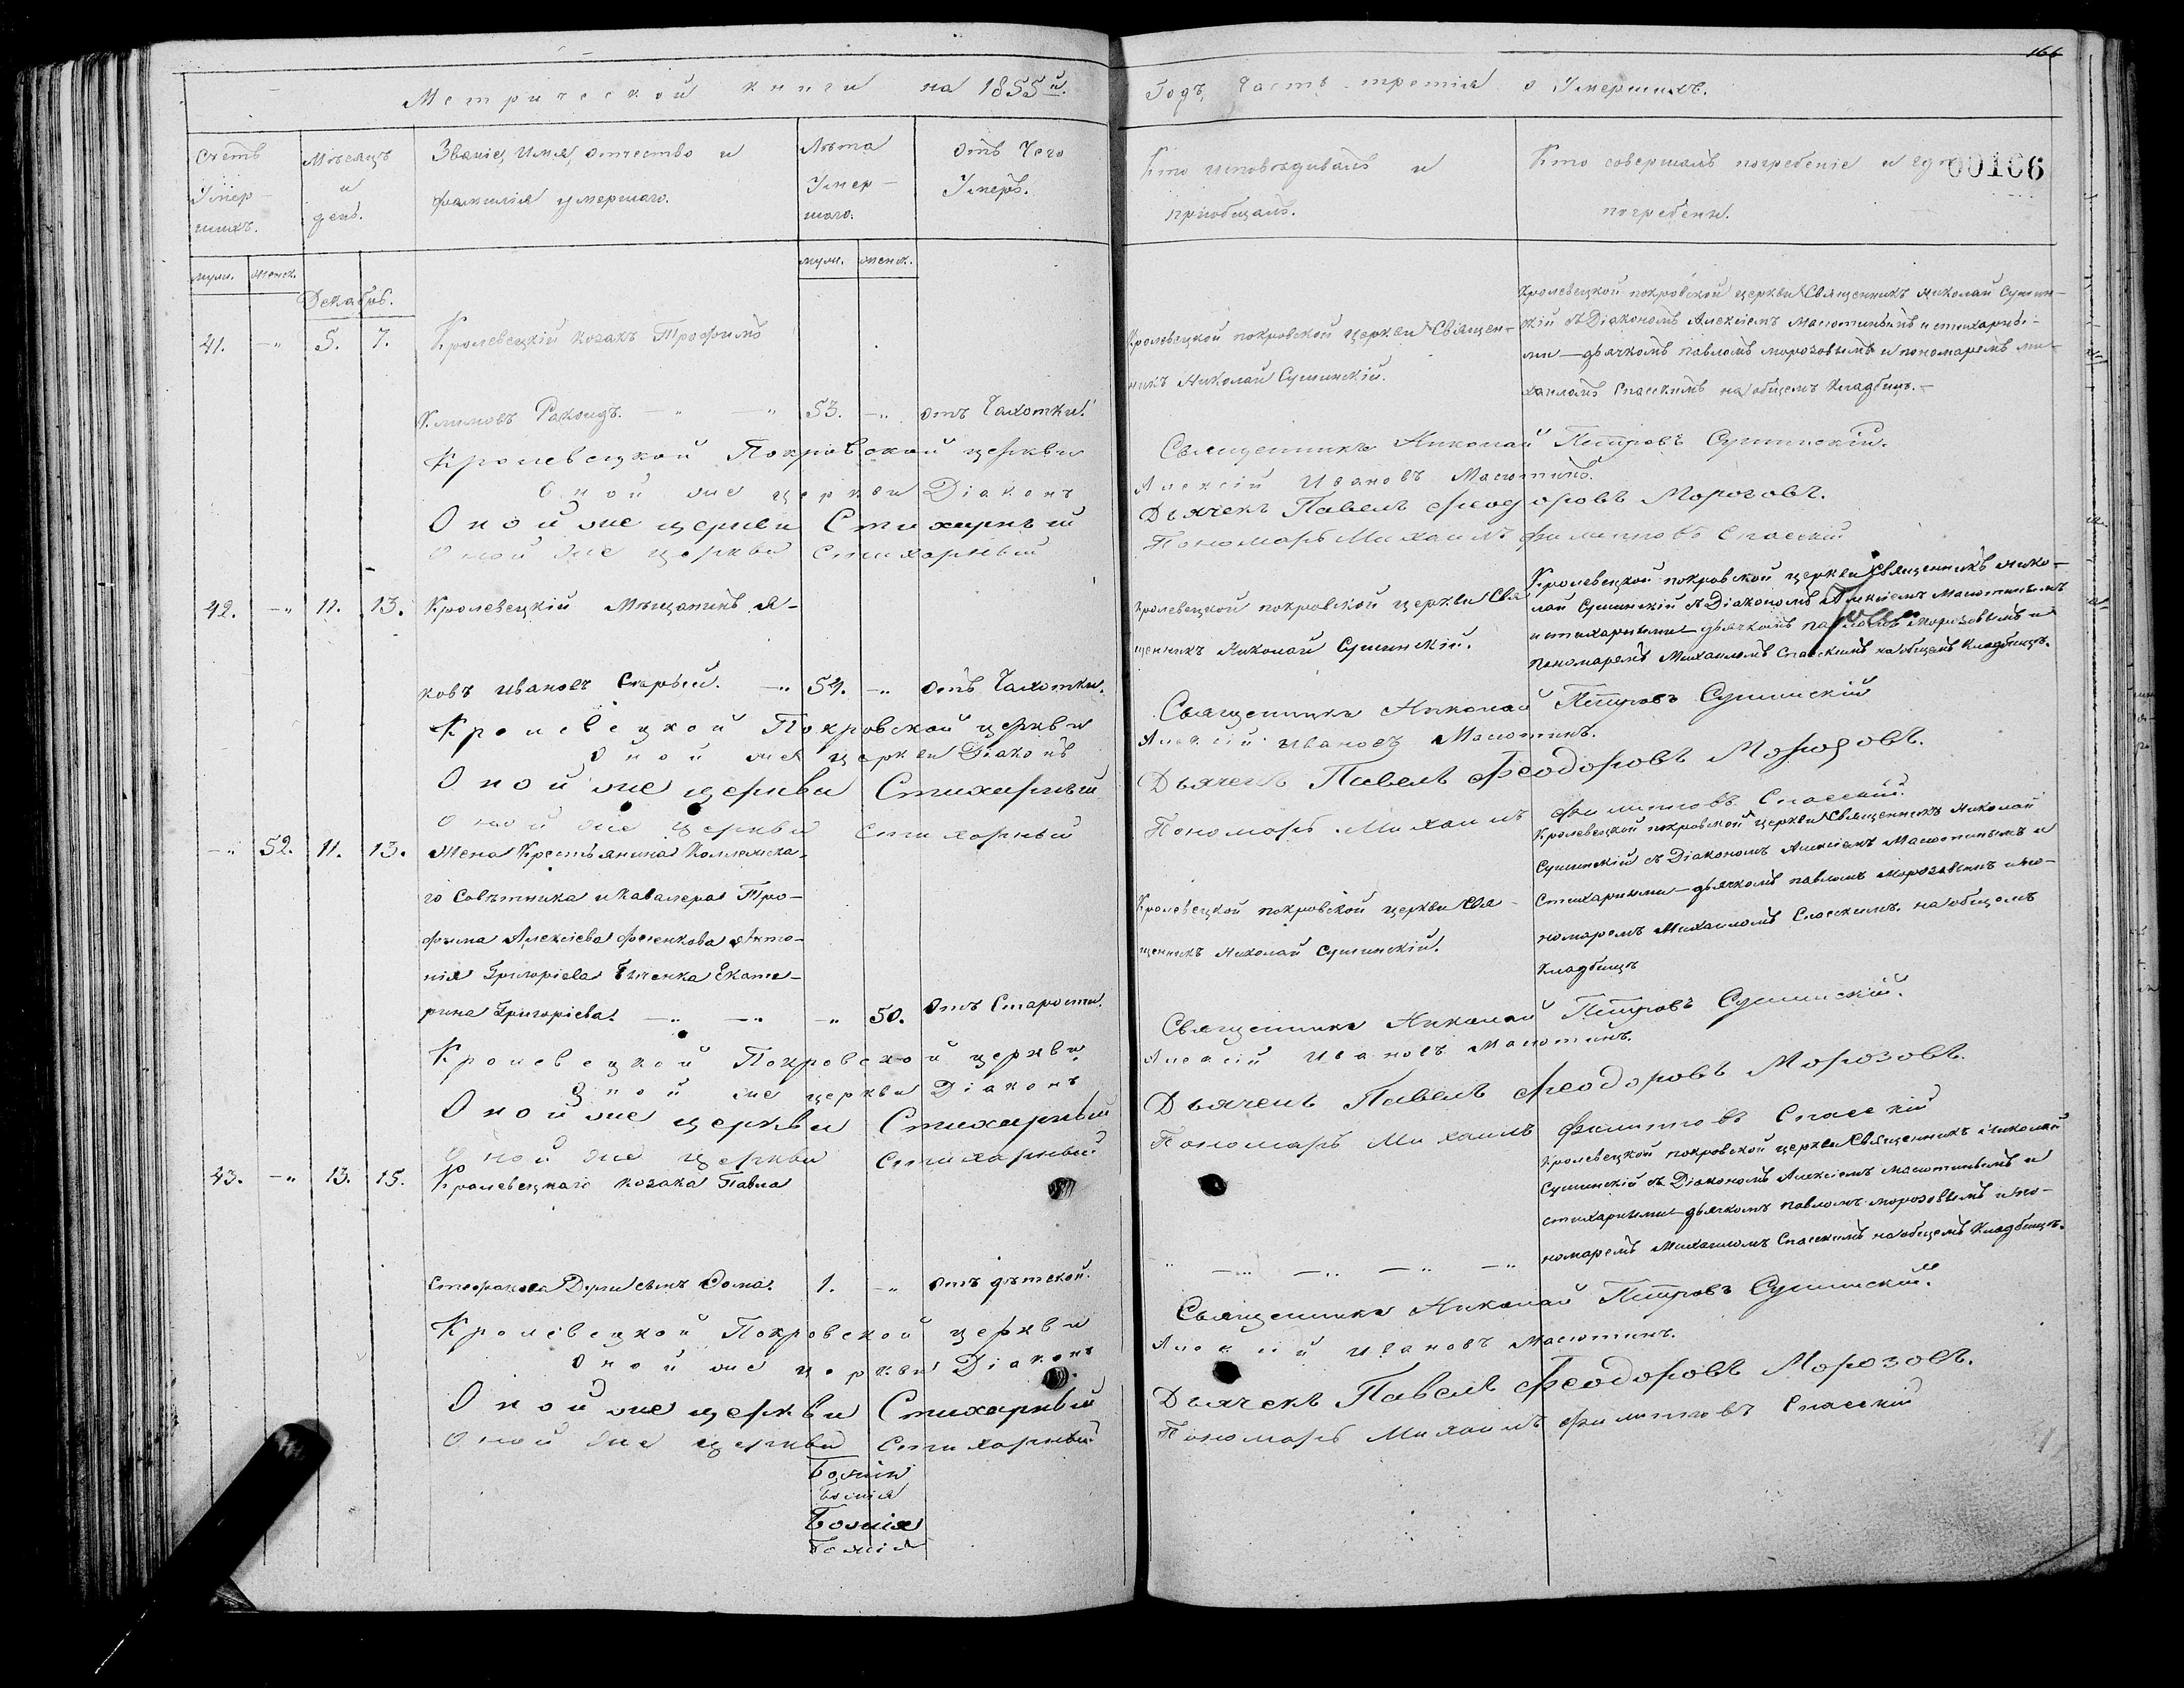 166
Метрической книги на 1855й.
Годъ, Часть третія о Умершихъ.
Счетъ Умер-шихъ.
Мѣсяцъ и день.
Званіе, Имя, отчество и фамилія умершаго.
Лѣта Умер-шаго.
Отъ Чего Умеръ.
Кто исповѣдывалъ и пріобщалъ.
Кто совершалъ погребеніе и гдѣ погребены.
00166
муж. женск.
муж. женск.
Декабрь.
41. —„ 5. 7. Кролевецкій козакъ Трофимъ
Климовъ —„ —„ 53. —„ Отъ Чахотки.
Кролевецкой покровской церкви Священ-
никъ Николай Сушинскій.
Кролевецкой покровской церкви Священникъ Николай Сушин-
скій съ Діакономъ Алексіемъ Масютинымъ и стихарны-
ми — дьячкомъ павломъ морозовымъ и пономаремъ ми-
хаиломъ Спасскимъ на общемъ Кладбищѣ.—
Кролевецкой Покровской церкви Священникъ Николай Петровъ Сушинскій.
Оной же церкви Діаконъ Алексій Ивановъ Масютинъ.
Оной же церкви Стихарный Дьячекъ Павелъ Феодоровъ Морозовъ.
Оной же церкви стихарный Пономарь Михаилъ Филипповъ Спасскій
42. —„ 11. 13. Кролевецкій Мѣщанинъ Я-
ковъ Ивановъ Сѣрый. —„ 54. —„ Отъ Чахотки.
Кролевецкой покровской церкви Свя
щенникъ Николай Сушинскій.
Кролевецкой покровской церкви Священникъ Нико-
лай Сушинскій съ Діакономъ Алексіемъ Масютинымъ
и стихарными — дьячкомъ павломъ Морозовымъ и
пономаремъ Михаиломъ Спасскимъ на общемъ Кладбищѣ.
Кролевецкой Покровской церкви Священникъ Николай Петровъ Сушинскій
Оной же церкви Діаконъ Алексій Ивановъ Масютинъ.
Оной же церкви Стихарный Дьячекъ Павелъ Феодоровъ Морозовъ.
Оной же церкви Стихарный Пономарь Михаилъ Филипповъ Спасскій.
—„ 52. 11. 13. Жена Крестьянина Коллежска-
го Совѣтника и Кавалера Тро-
фима Алексіева Фесенкова Анто-
нія Григоріева Екате-
рина Григоріева. —„ —„ —„ 50. Отъ Старости.
Кролевецкой покровской церкви Свя-
щенникъ Николай Сушинскій.
Кролевецкой покровской церкви Священникъ Николай
Сушинскій съ Діакономъ Алексіемъ Масютинымъ и
Стихарными — дьячкомъ павломъ морозовымъ и по-
номаремъ Михаиломъ Спасскимъ на общемъ
Кладбищѣ
Кролевецкой Покровской церкви Священникъ Николай Петровъ Сушинскій.
Оной же церкви Діаконъ Алексій Ивановъ Масютинъ.
Оной же церкви Стихарный Дьячекъ Павелъ Феодоровъ Морозовъ.
Оной же церкви Стихарный Пономарь Михаилъ Филипповъ Спасскій
43. —„ 13. 15. Кролевецкаго козака Павла
Стефанова сынъ Фома. 1. —„ Отъ дѣтской.
„ —„ —„ —„ —„
Кролевецкой покровской церкви Священникъ Николай
Сушинскій съ Діакономъ Алексіемъ Масютинымъ и
стихарными — дьячкомъ павломъ морозовымъ и по-
номаремъ Михаиломъ Спасскимъ на общемъ Кладбищѣ.
Кролевецкой Покровской церкви Священникъ Николай Петровъ Сушинскій.
Оной же церкви Діаконъ Алексій Ивановъ Масютинъ.
Оной же церкви Стихарный Дьячекъ Павелъ Феодоровъ Морозовъ.
Оной же церкви Стихарный Пономарь Михаилъ Филипповъ Спасскій